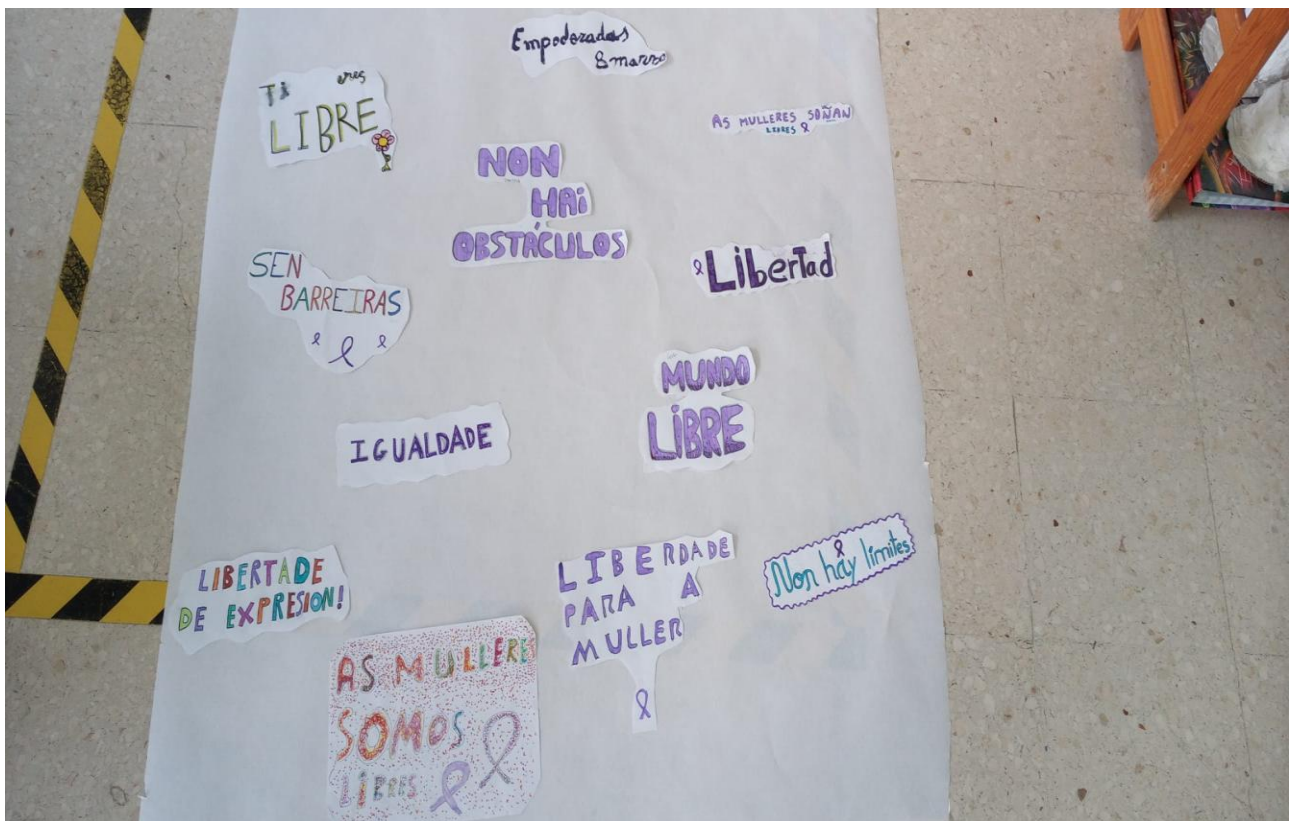 Empoderadas
8 marzo
Ti eres
LIBRE
AS MULLERES SOÑAN
LIBRES
NON
HAi
OBSTÁCULOS
SEN
BARREIRAS
LiberTad
MUNDO
LiBRE
IGUALDADE
LIBERTADE
DE EXPRESION!
LIBERDADE
PARA A
MULLER
Non hay límites
AS MULLERE
SOMOS
LIBRES